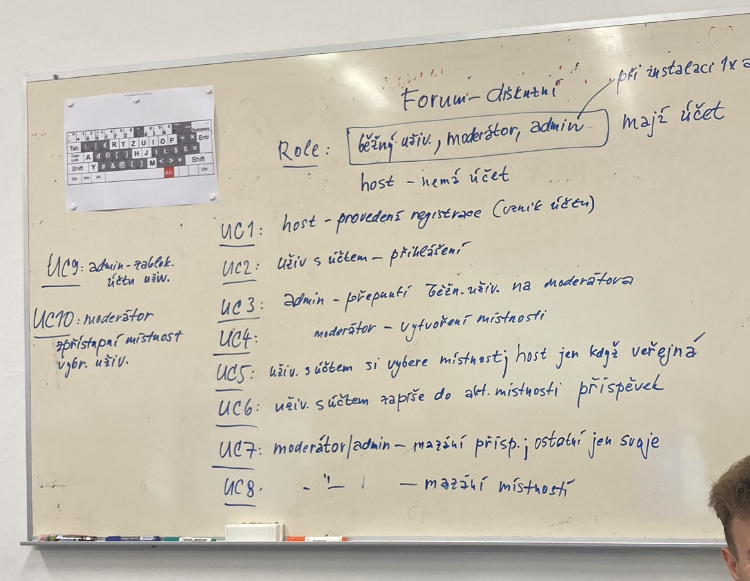 Forum - diskuzní
při instalaci 1x a
Role: běžný uživ., moderátor, admin mají účet
host - nemá účet
UC1: host - provedení registrace (vznik účtu)
UC2: uživ s účtem - přihlášení
UC3: admin - přepnutí běžn. uživ. na moderátora
UC4: moderátor - vytvoření místnosti
UC5: uživ. s účtem si vybere místnost; host jen když veřejná
UC6: uživ. s účtem zapíše do akt. místnosti příspěvek
UC7: moderátor/admin - mazání přísp.; ostatní jen svoje
UC8. - "- - mazání místností
UC9: admin - zablok.
účtu uživ.
UC10: moderátor
zpřístupní místnost
vybr. uživ.
Tab R T Z U I O P Entr
A d H J L
Shift Y M Shift